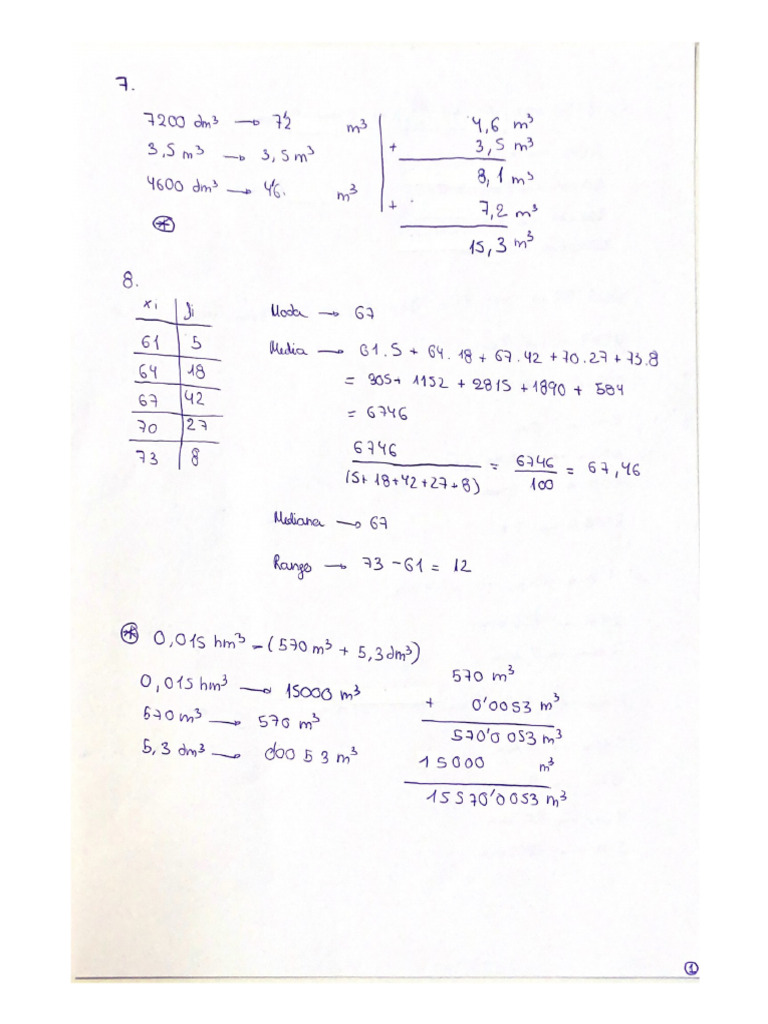 7.
7200 dm³ → 7'2 m³
3,5 m³ → 3,5 m³
4600 dm³ → 4'6 m³
*
4,6 m³
+ 3,5 m³
8,1 m³
+ 7,2 m³
15,3 m³
8.
xi fi
61 5
64 18
67 42
70 27
73 8
Moda → 67
Media → 61.5 + 64.18 + 67.42 + 70.27 + 73.8
= 305 + 1152 + 2815 + 1890 + 584
= 6746
6746
(5+18+42+27+8) = 6746/100 = 67,46
Mediana → 67
Rango → 73 - 61 = 12
* 0,015 hm³ - (570 m³ + 5,3 dm³)
0,015 hm³ → 15000 m³
570 m³ → 570 m³
5,3 dm³ → 0'0053 m³
570 m³
+ 0'0053 m³
570'0053 m³
15000 m³
15570'0053 m³
1